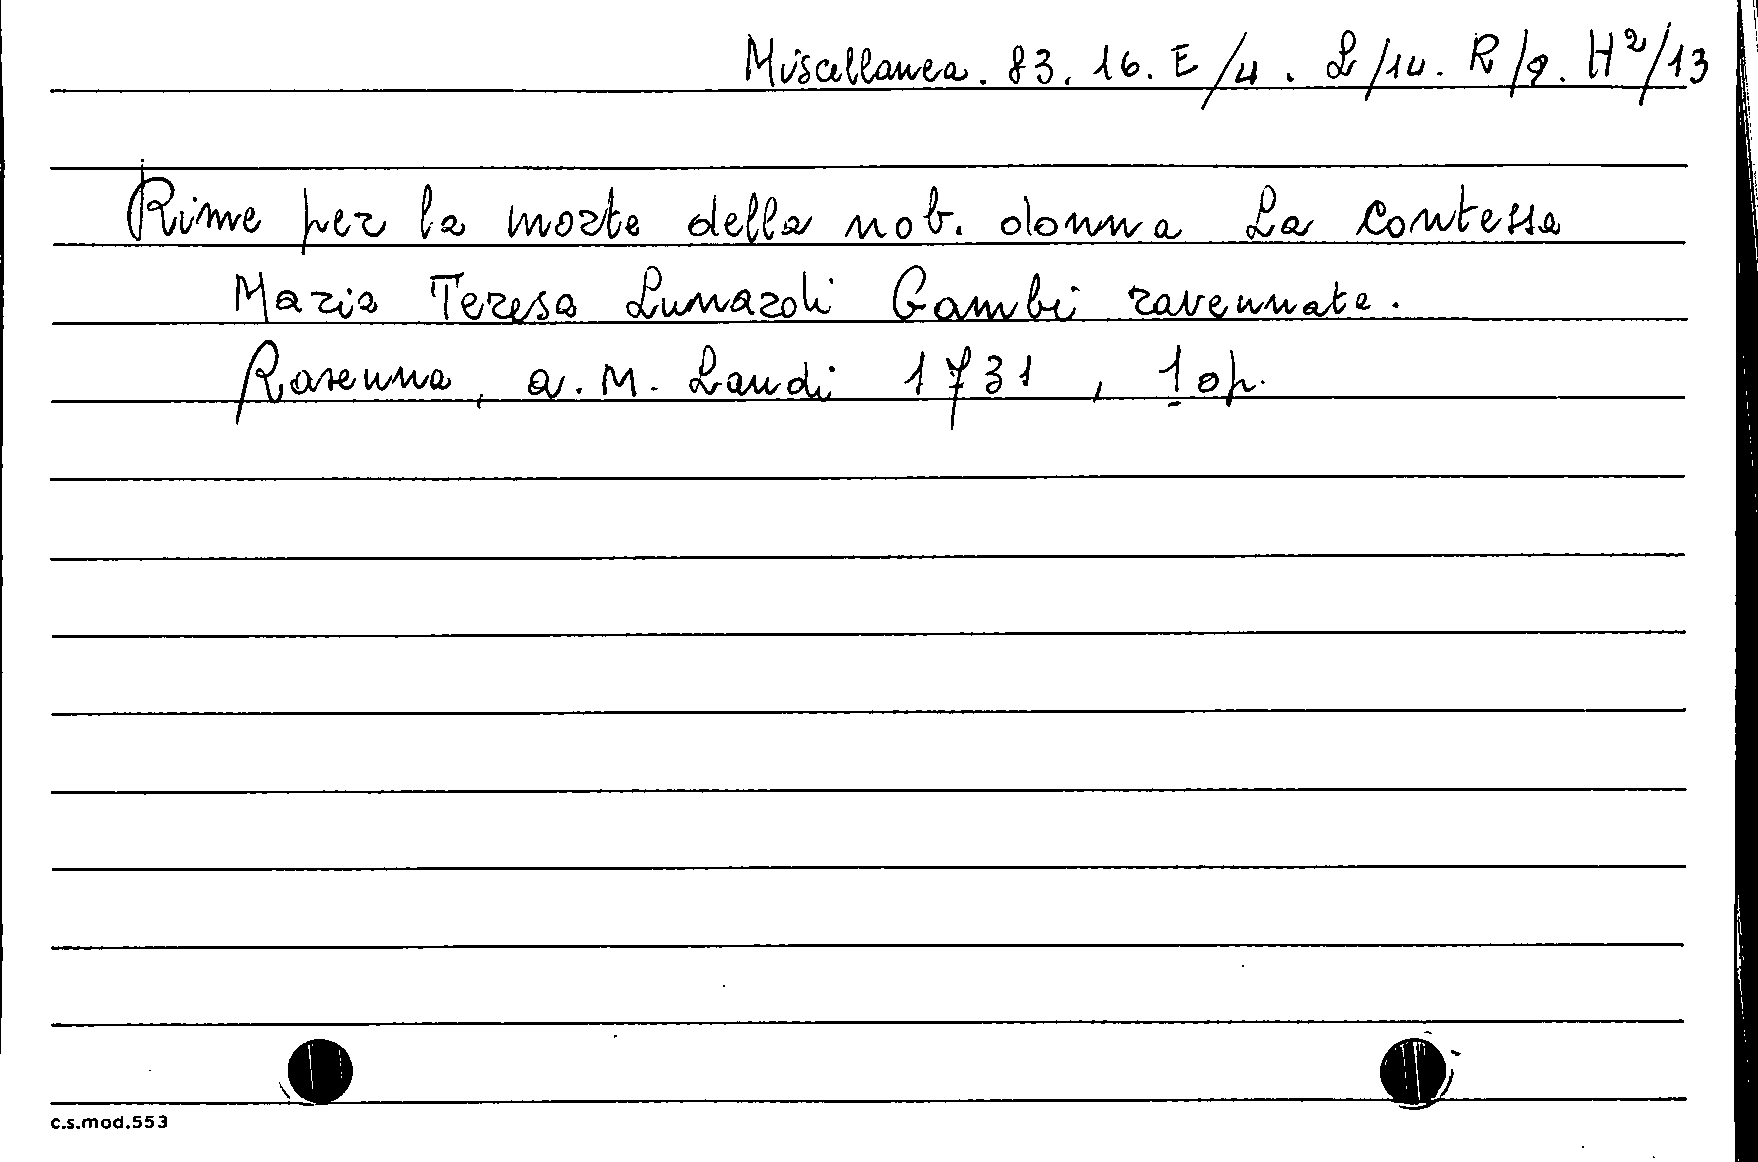 Miscellanea. 83. 16. E/4. L/14. R/9. H²/13
Rime per la morte della nob. donna La contessa
Maria Teresa Lunardi Gambi ravennate.
Ravenna, a. M. Landi 1731, 1 op.
c.s.mod.553